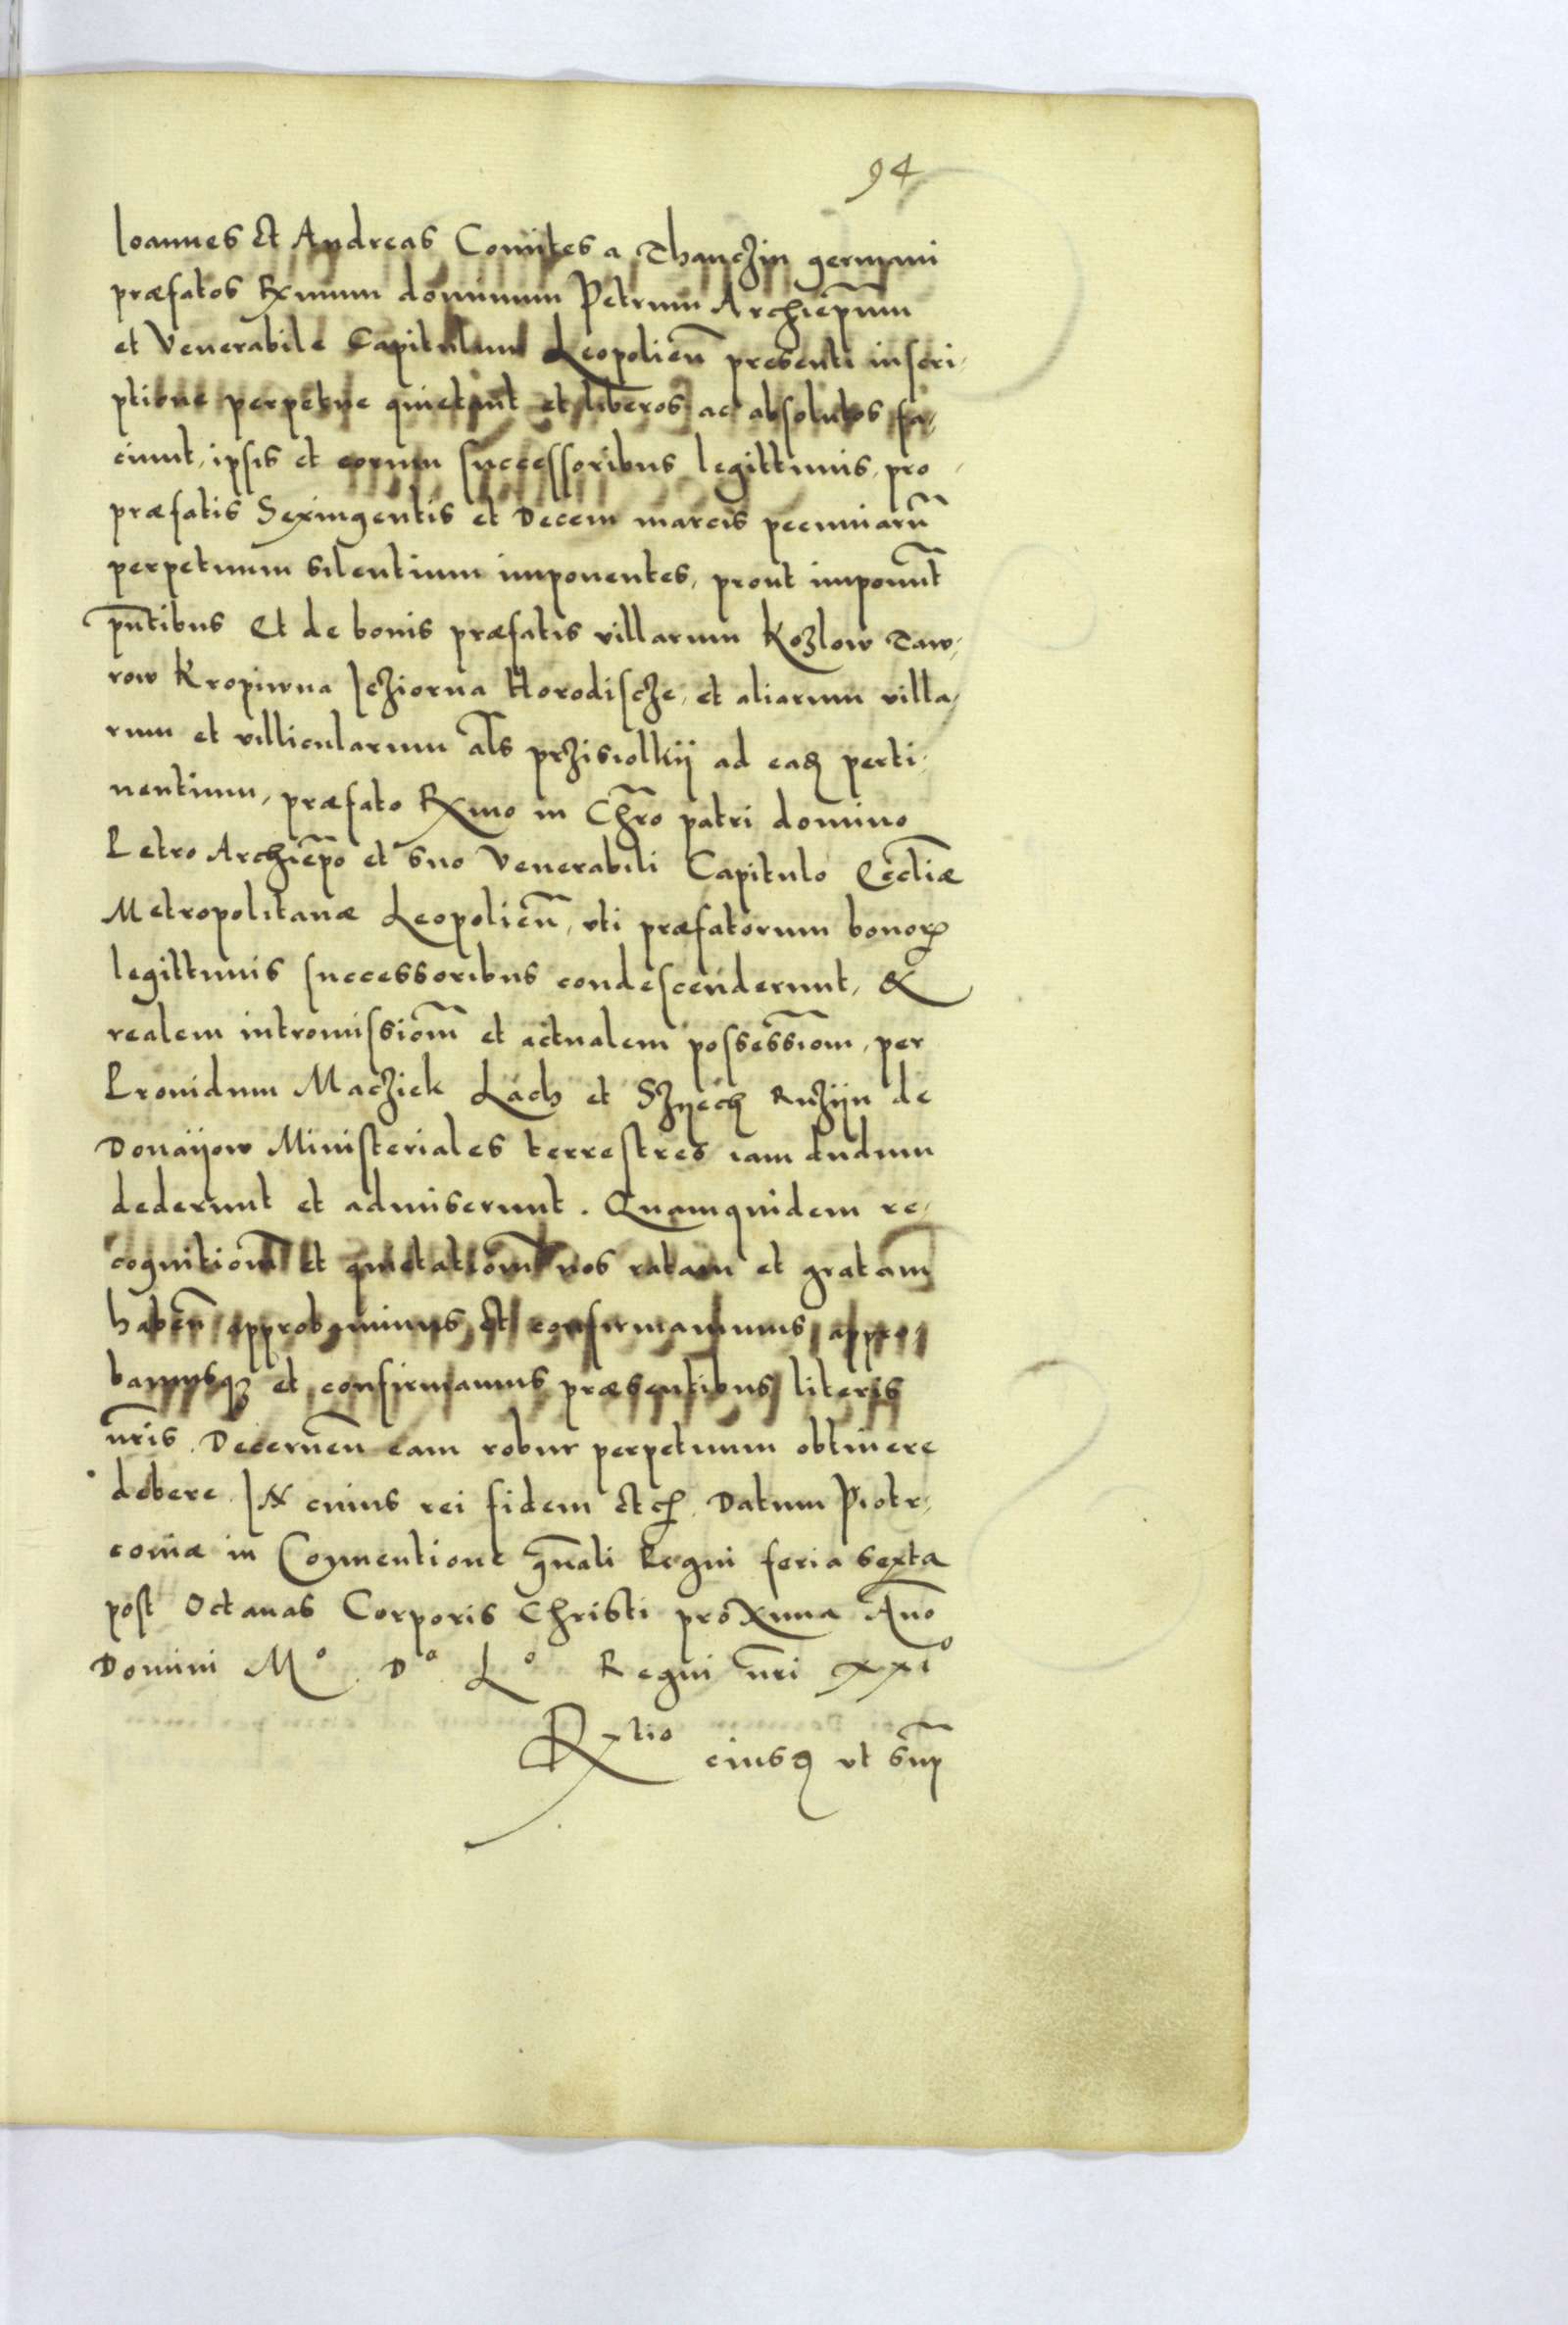 94
Ioannes et Andreas Comites a Thanczin germani
præfatos Rxmum dominum Petrum Archiep̄num
et Venerabile Capitulum Leopolien̄ presenti inscri,
ptione perpetue quietant et liberos ac absolutos fa,
ciunt, ipsis et eorum successoribus legittimis, pro
præfatis Sexingentis et Decem marcis pecuniarū
perpetuum silentium imponentes, prout imponūt
pn̄tibus Et de bonis præfatis villarum Kozlow Taw,
row Kropiwna Jeziorna Horodiscze, et aliarum villa,
rum et villicularum al̄s przisiolkij ad eaḍ perti,
nentium, præfato Rxmo in Chr̄o patri domino
Petro Archiep̄o et suo Venerabili Capitulo Eccl̄iæ
Metropolitanæ Leopolien̄, uti præfatorum bonoꝝ
legittimis successoribus condescenderunt, &
realem intromissiom̄ et actualem possessiom̄, per
Prouidum Macziek Lach et Szyech Ruzijn de
Donaijow Ministeriales terrestres iam dudum
dederunt et admiserunt. Quamquidem re,
cognitiom̄ et quietatiom̄ nos ratam et gratam
haben̄ approbauimus et confirmauimus appro
bamusqꝫ et confirmamus præsentibus literis
nr̄is. Decernen̄ eam robur perpetuum obtinere
debere. IN cuius rei fidem etc. Datum Piotr,
couiæ in Conuentione gn̄ali Regni feria sexta
post Octauas Corporis Christi proxima Ann̄o
Domini Mº. Dº. Lº Regni nr̄i xxiº
Rxtio eiusḍ ut sup̄